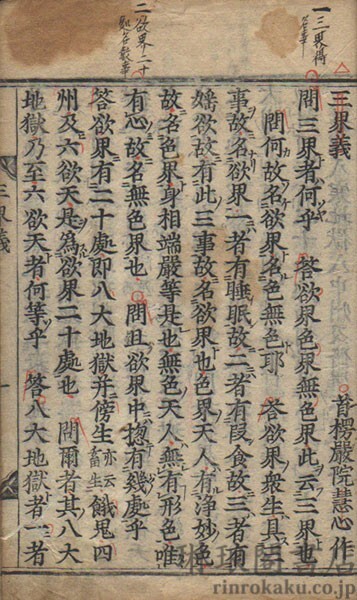 一三界揭
二欲界二十
三界義 首楞嚴院慧心作
問三界者何乎 答欲界色界無色界此云三界也
問何故名欲界色無色耶 答欲界衆生具三
事故名欲界一者有睡眠故二者有段食故三者有
婬欲故有此三事故名欲界也色界天人有淨妙色
故名色界身相端嚴等是也無色天人無有形色唯
有心故名無色界也 問且欲界中捴有幾處乎
答欲界有二十處即八大地獄并傍生亦云畜生餓鬼四
州及六欲天是為欲界二十處也 問爾者其八大
地獄乃至六欲天者何等乎 答八大地獄者一者
三界義
琳琅閣書店
rinrokaku.co.jp